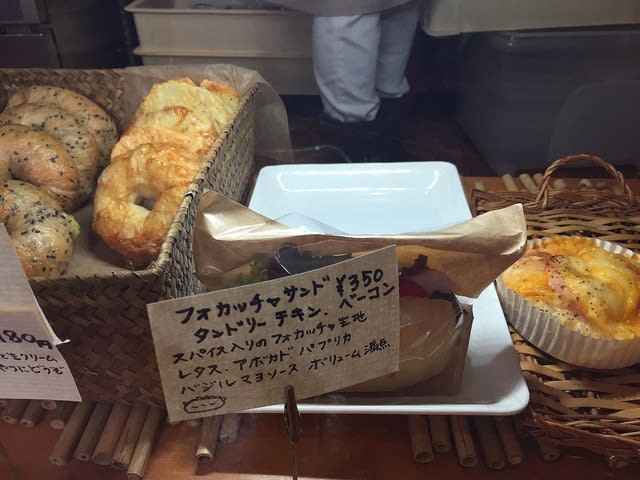 フォカッチャサンド ¥350
タンドリーチキン、ベーコン
スパイス入りのフォカッチャ生地
レタス、アボカド、パプリカ
バジルマヨソース ボリューム満点
180円
どもクリーム
やつにどうぞ